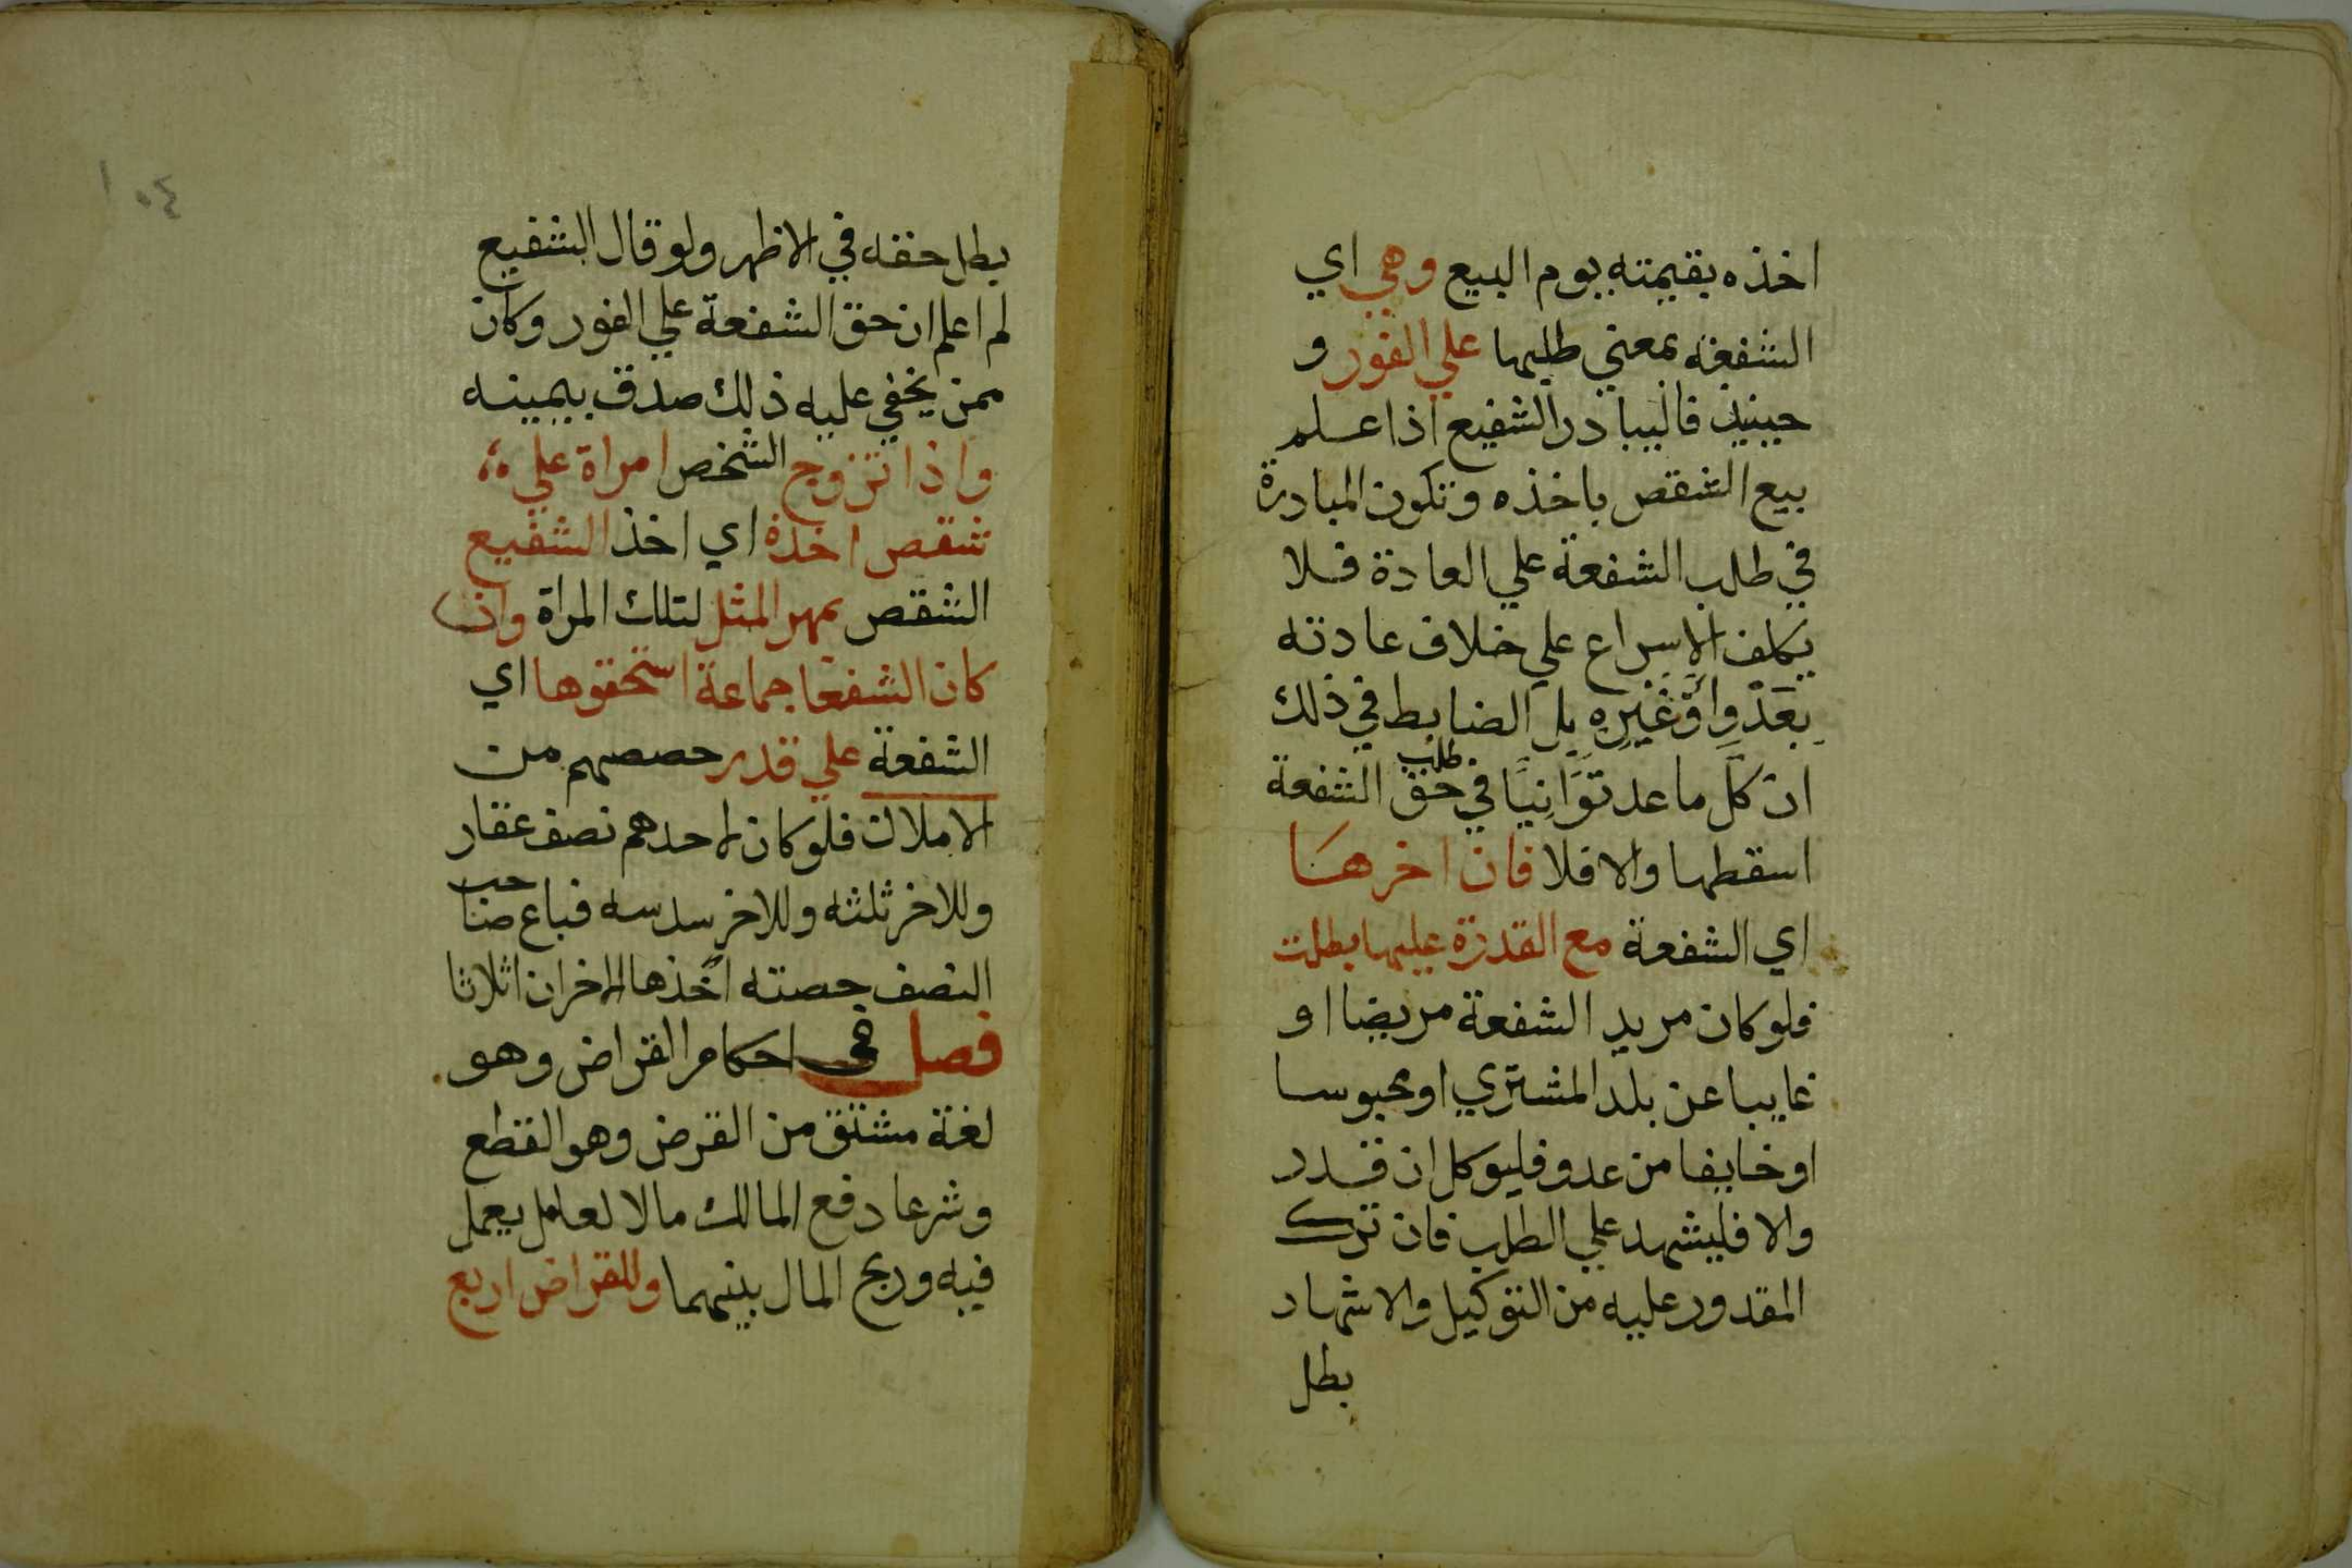 اخذه بقيمته يوم البيع وهي اي
الشفعة بمعني طلبها علي الفور و
حينيذ فاليبادر الشفيع اذا علم
بيع الشقص باخذه وتكون المبادرة
في طلب الشفعة علي العادة فلا
يكلف الاسراع علي خلاف عادته
بَعَدْوٍ اَوْ غَيْرِهِ بل الضابط في ذلك
ان كل ما عد تَوَانِيًا في طلب حق الشفعة
اسقطها والا فلا فان اخرهَا
اي الشفعة مع القدرة عليها بطلت
فلو كان مريد الشفعة مريضا او
غايبا عن بلد المشتري او محبوسا
او خايفا من عدو فليوكل ان قدر
والا فليشهد علي الطلب فان ترك
المقدور عليه من التوكيل والاشهاد
بطل
١٠٤
بطل حقه في الاظهر ولو قال الشفيع
لم اعلم ان حق الشفعة علي الفور وكان
ممن يخفي عليه ذلك صدق بيمينه
واذا تزوج الشخص امراة علي
شقص اخذه اي اخذ الشفيع
الشقص بمهر المثل لتلك المراة وان
كان الشفعا جماعة استحقوها اي
الشفعة علي قدر حصصهم من
الاملاك فلو كان لاحدهم نصف عقار
وللاخر ثلثه وللاخر سدسه فباع صاحب
النصف حصته اخذها الاخران اثلاثا
فصل في احكام القراض وهو
لغة مشتق من القرض وهو القطع
وشرعا دفع المالك مالا لعامل يعمل
فيه وربح المال بينهما وللقراض اربع